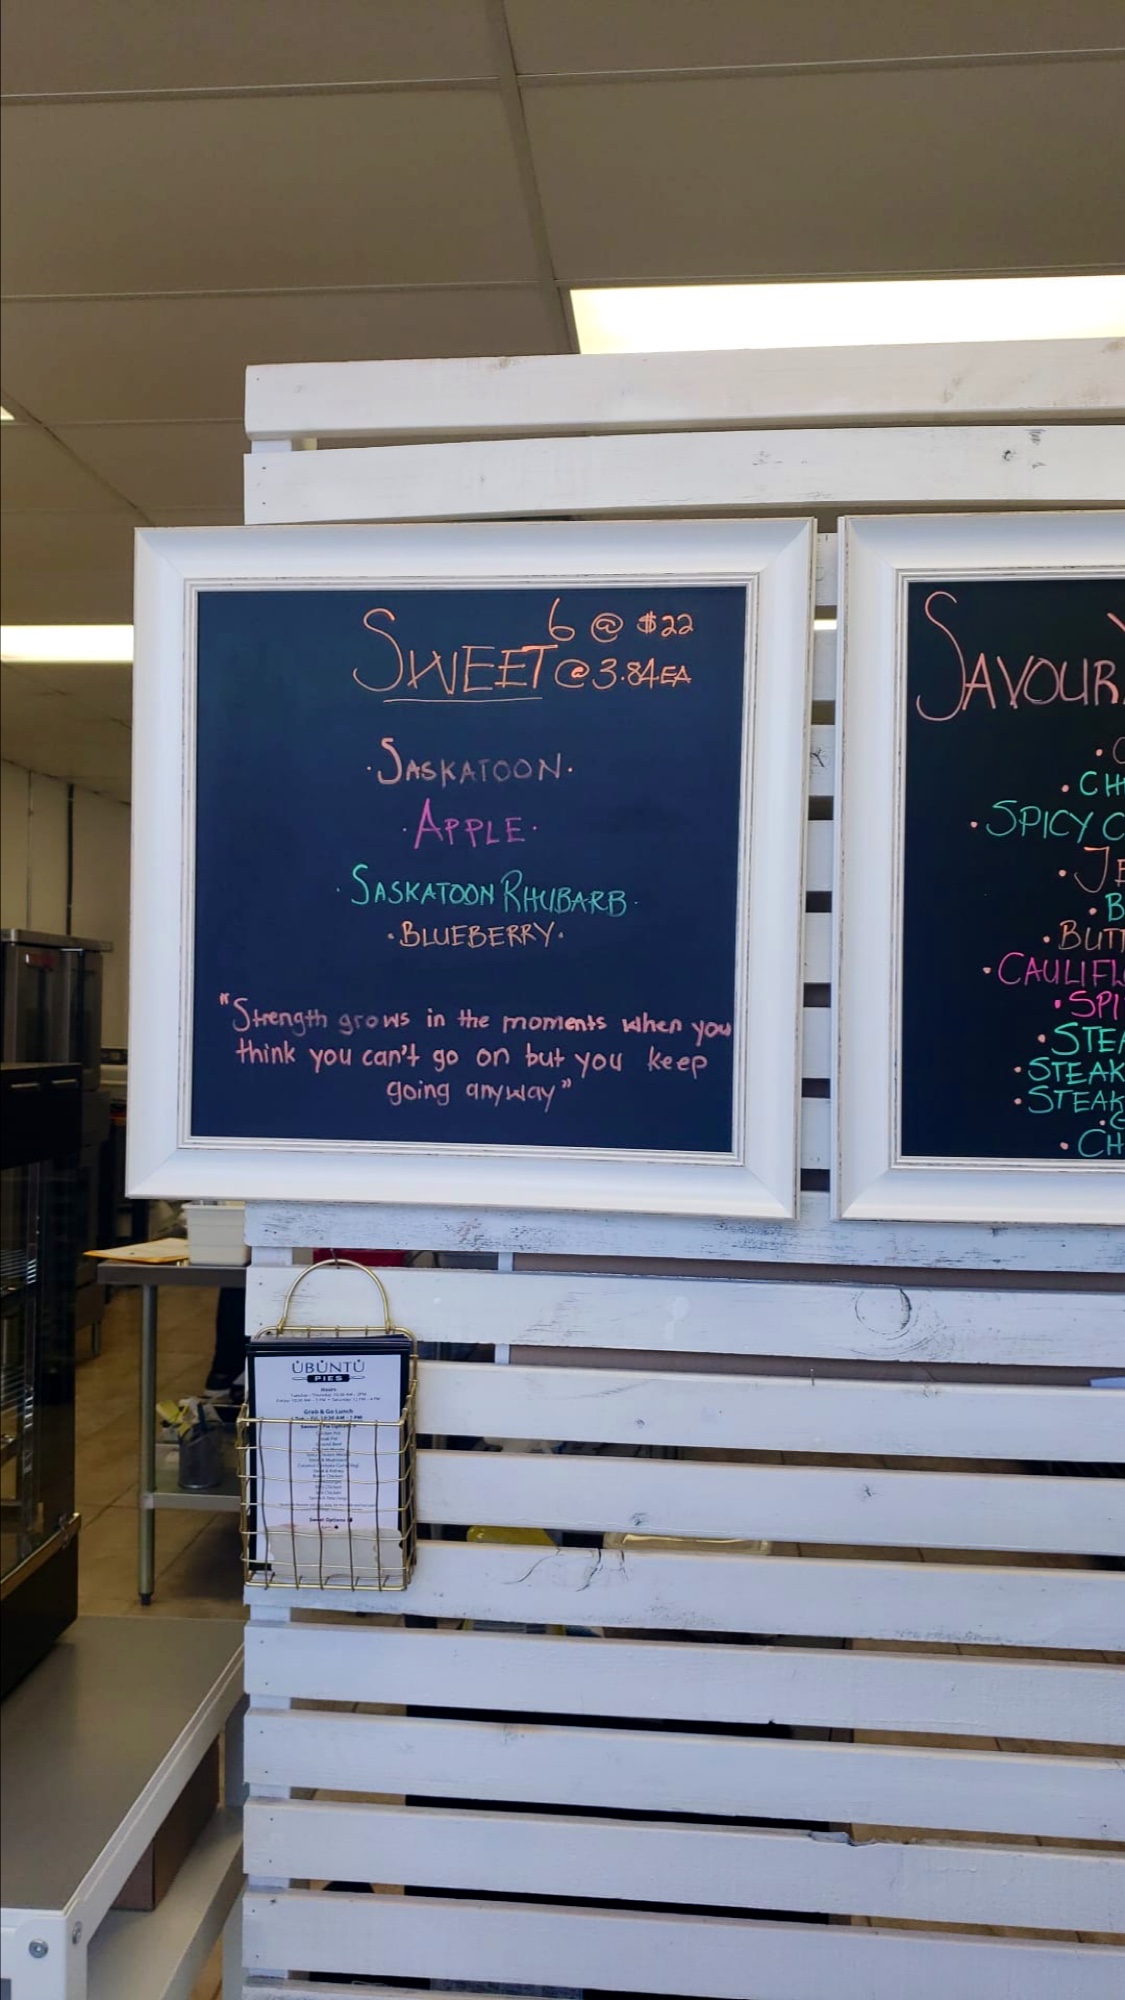 6 @ $22
SWEET @ 3.84EA
·SASKATOON·
·APPLE·
·SASKATOON RHUBARB·
·BLUEBERRY·
"Strength grows in the moments when you
think you can't go on but you keep
going anyway"
SAVOUR
·CH
·SPICY C
·JE
·B
·BUTT
·CAULIFL
·SPI
·STEA
·STEAK
·STEAK
·CH
UBUNTU
PIES
Hours
Grab & Go Lunch
Sweet Options